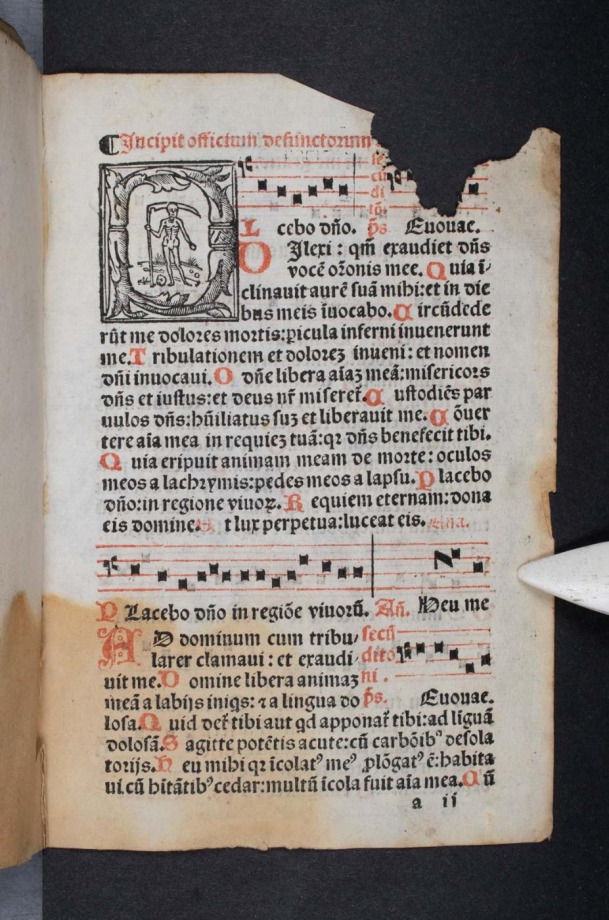 ¶Incipit officium defunctorum
se
cū
di
tō
L cebo dño. ps. Euouae.
DIlexi : qm̄ exaudiet dñs
vocē oꝛonis mee. Quia ī/
clinauit aurē suā mihi:et in die
bus meis īuocabo. Circūdede
rūt me dolores mortis:picula inferni inuenerunt
me. Tribulationem et doloreꝫ inueni : et nomen
dñi inuocaui. O dñe libera aīaꝫ meā:misericors
dñs et iustus:et deus nr̄ miseret̄. Custodiēs par
uulos dñs:hūiliatus suꝫ et liberauit me. Cōuer
tere aīa mea in requieꝫ tuā:qꝛ dñs benefecit tibi.
Quia eripuit animam meam de morte : oculos
meos a lachrymis:pedes meos a lapsu. Placebo
dño:in regione viuoꝝ. Requiem eternam:dona
eis domine. Et lux perpetua:luceat eis. Aña.
PLacebo dño in regiōe viuorū. Añ. Heu me
AD dominum cum tribu/ secū
larer clamaui : et exaudi/ di tō
uit me. Domine libera animaꝫ ni .
meā a labijs iniqs: ⁊ a lingua do ps. Euouae.
losa. Quid det̄ tibi aut qd apponat̄ tibi:ad līguā
dolosā. Sagitte potētis acute:cū carbōibꝰ desola
torijs. Heu mihi qꝛ īcolatꝰ meꝰ ꝓlōgatꝰ ē:habita
ui cū hītātibꝰ cedar:multū īcola fuit aīa mea. Cū
a ii